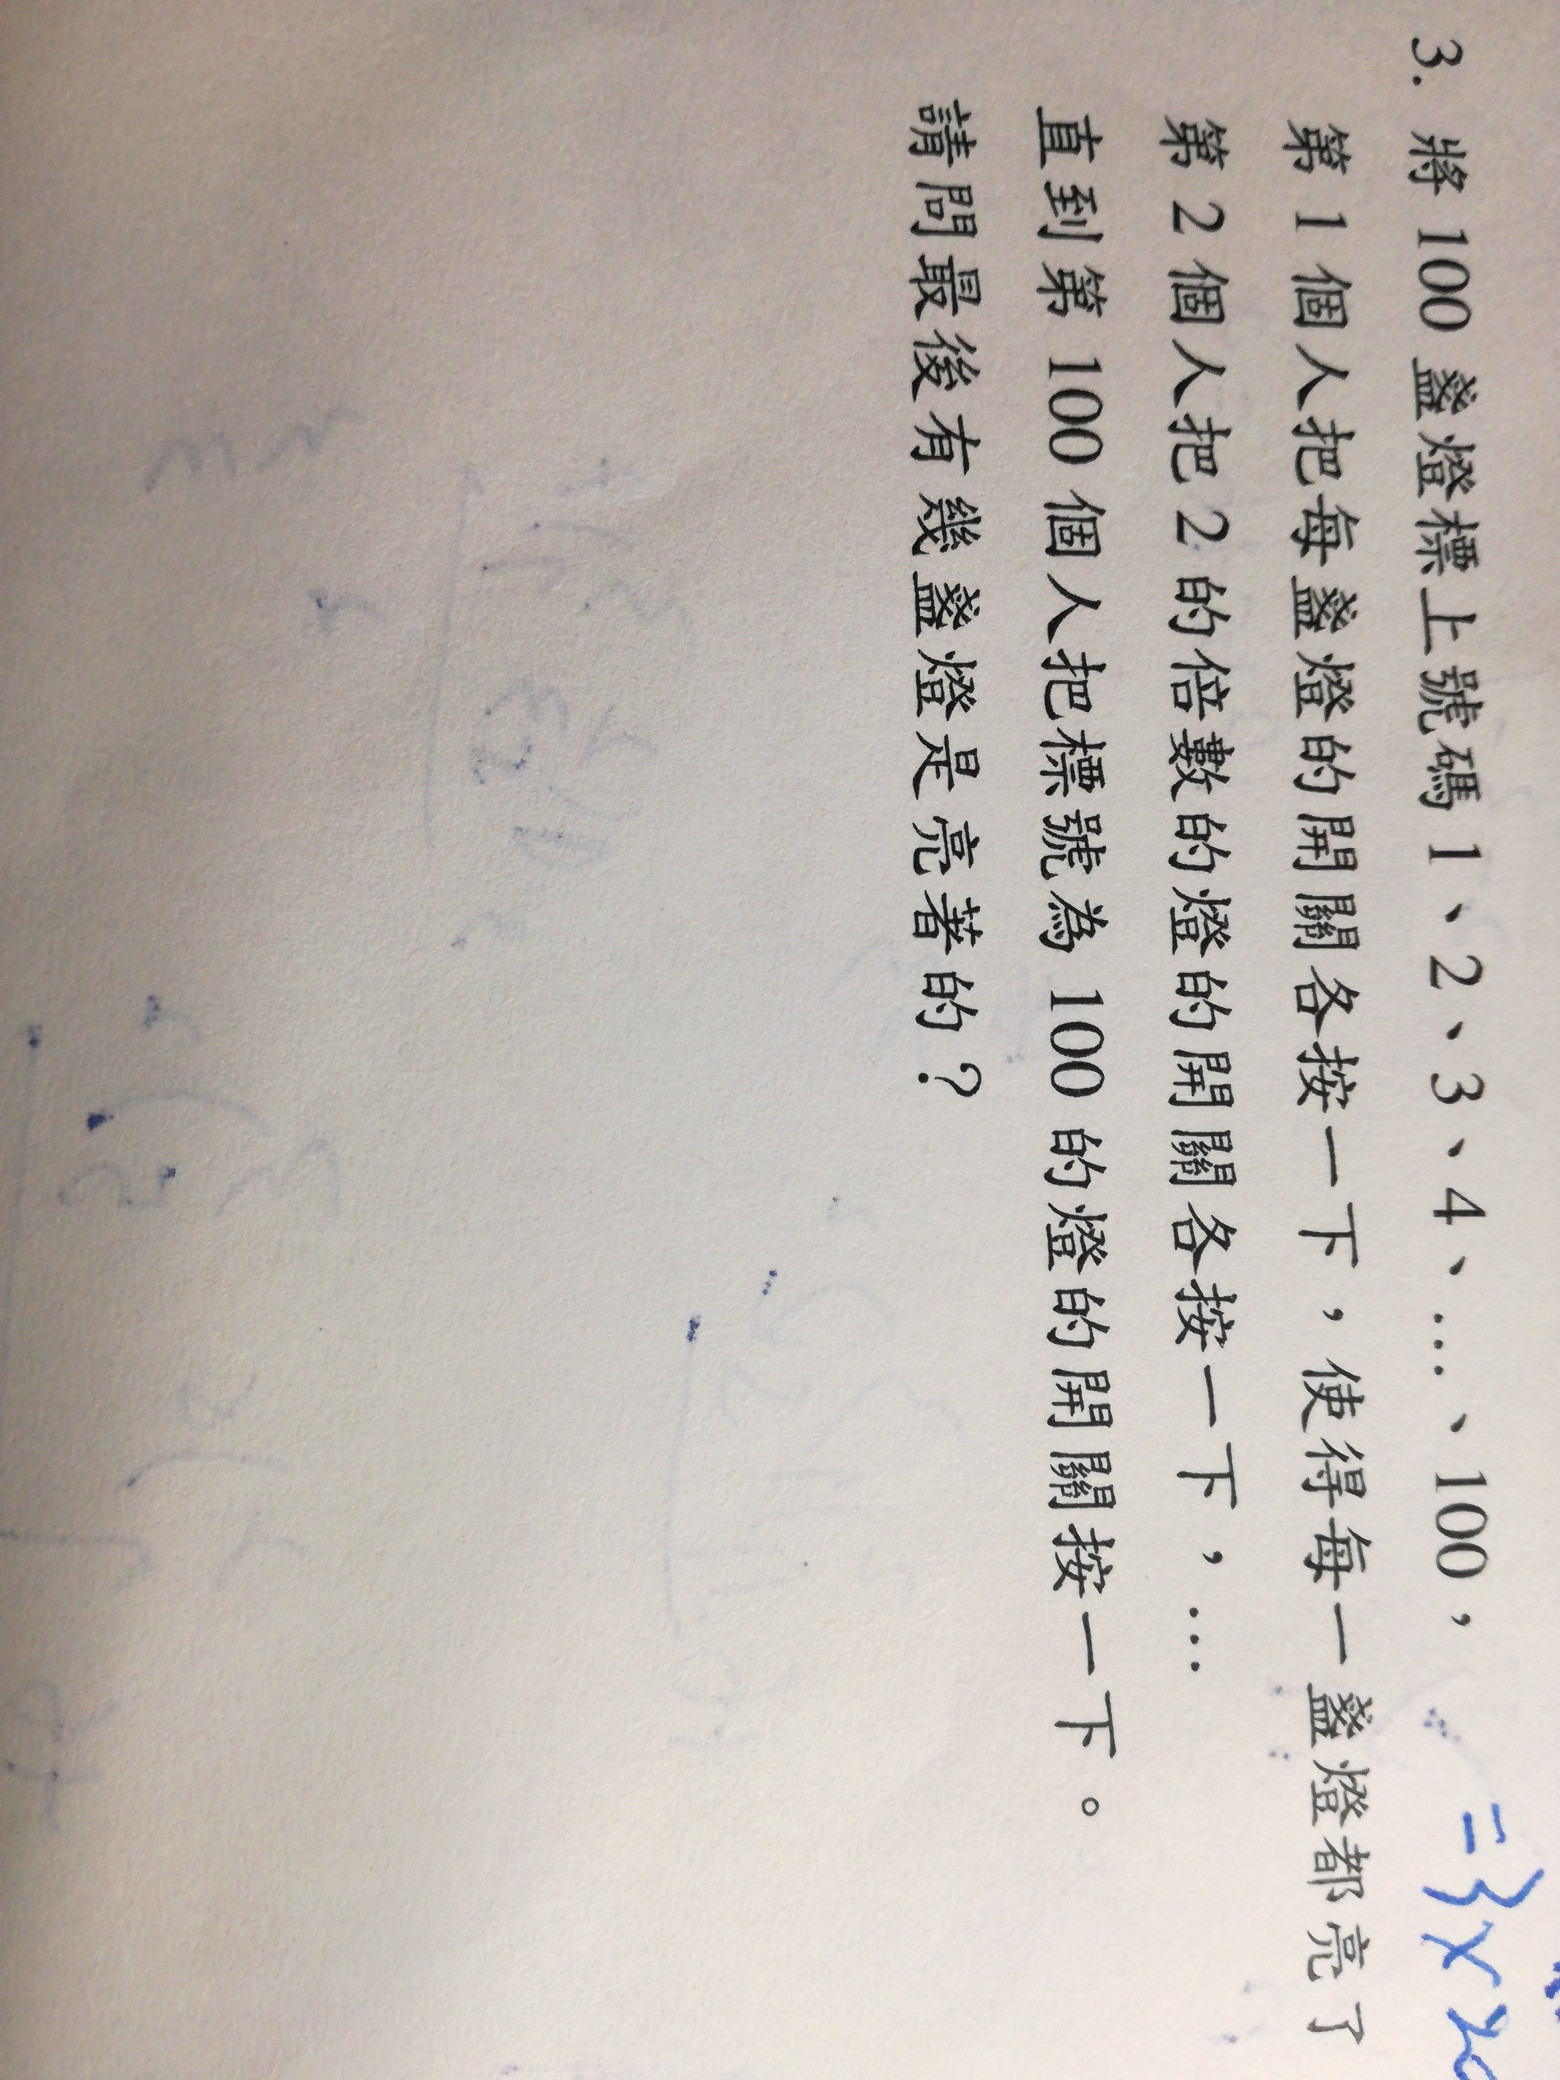 3. 將 100 盞燈標上號碼 1、2、3、4、…、100，
第 1 個人把每盞燈的開關各按一下，使得每一盞燈都亮了
第 2 個人把 2 的倍數的燈的開關各按一下，…
直到第 100 個人把標號為 100 的燈的開關按一下。
請問最後有幾盞燈是亮著的？
={x